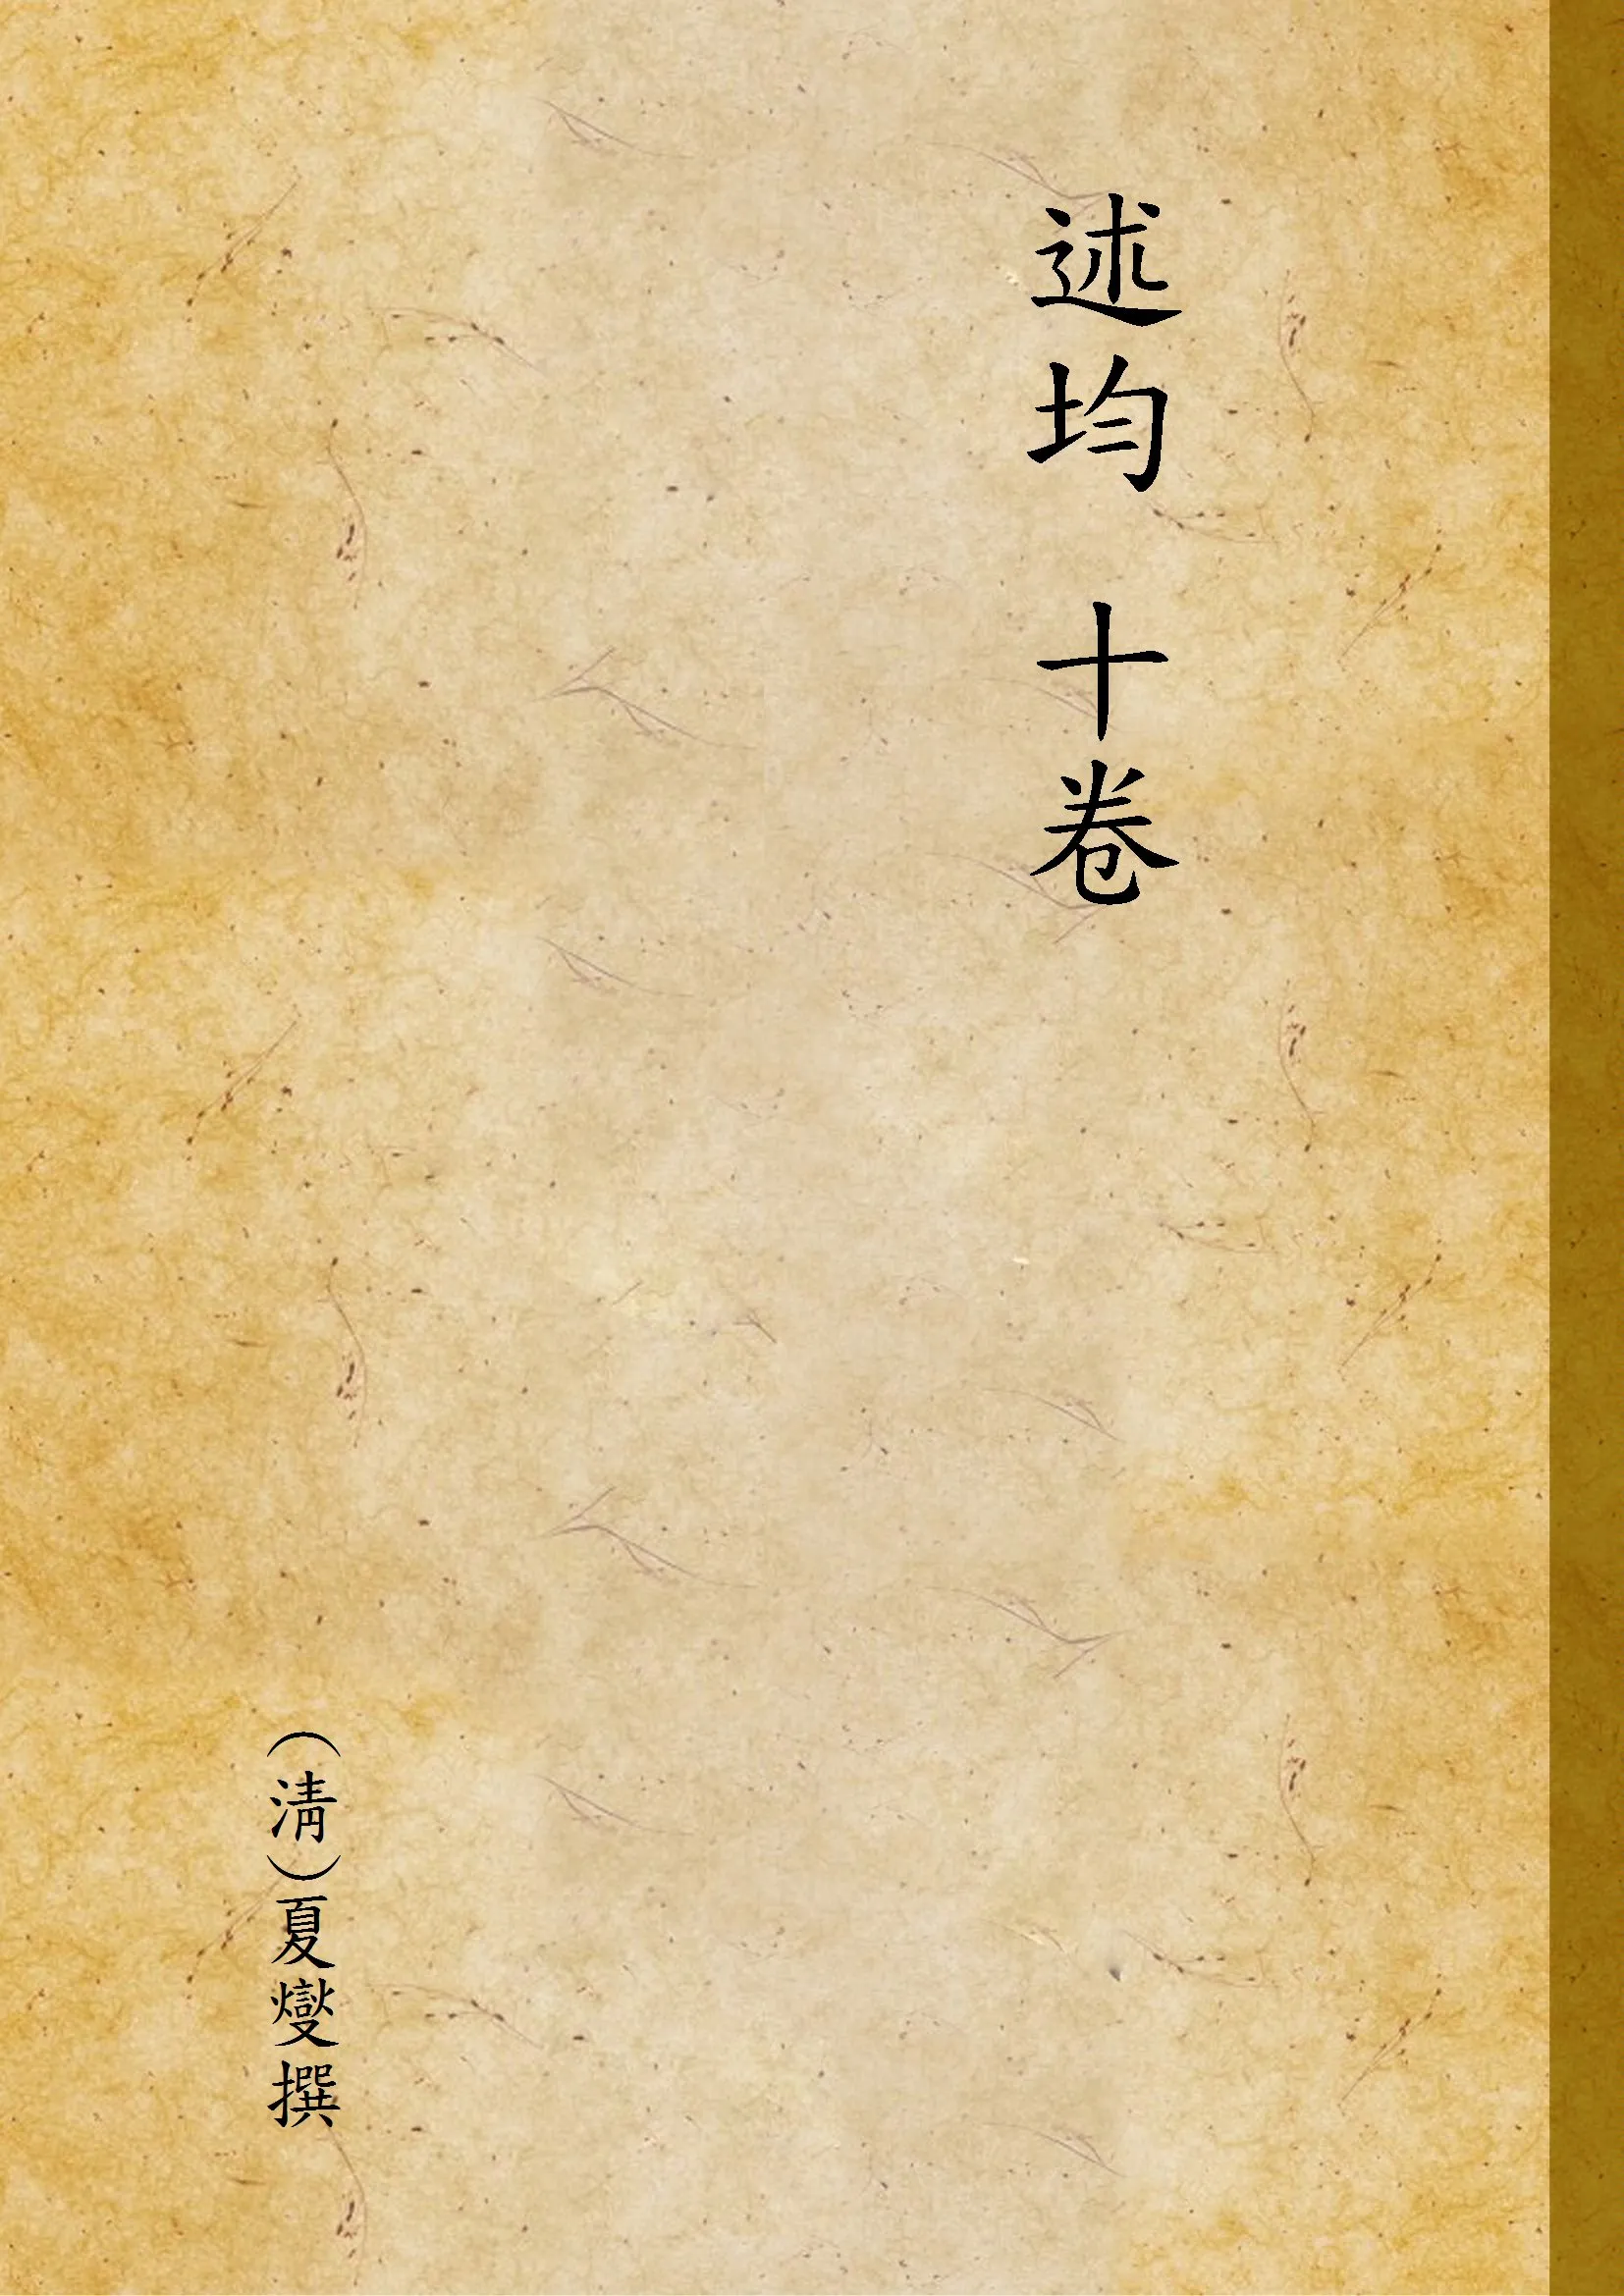 述均 十卷
（清）夏燮撰